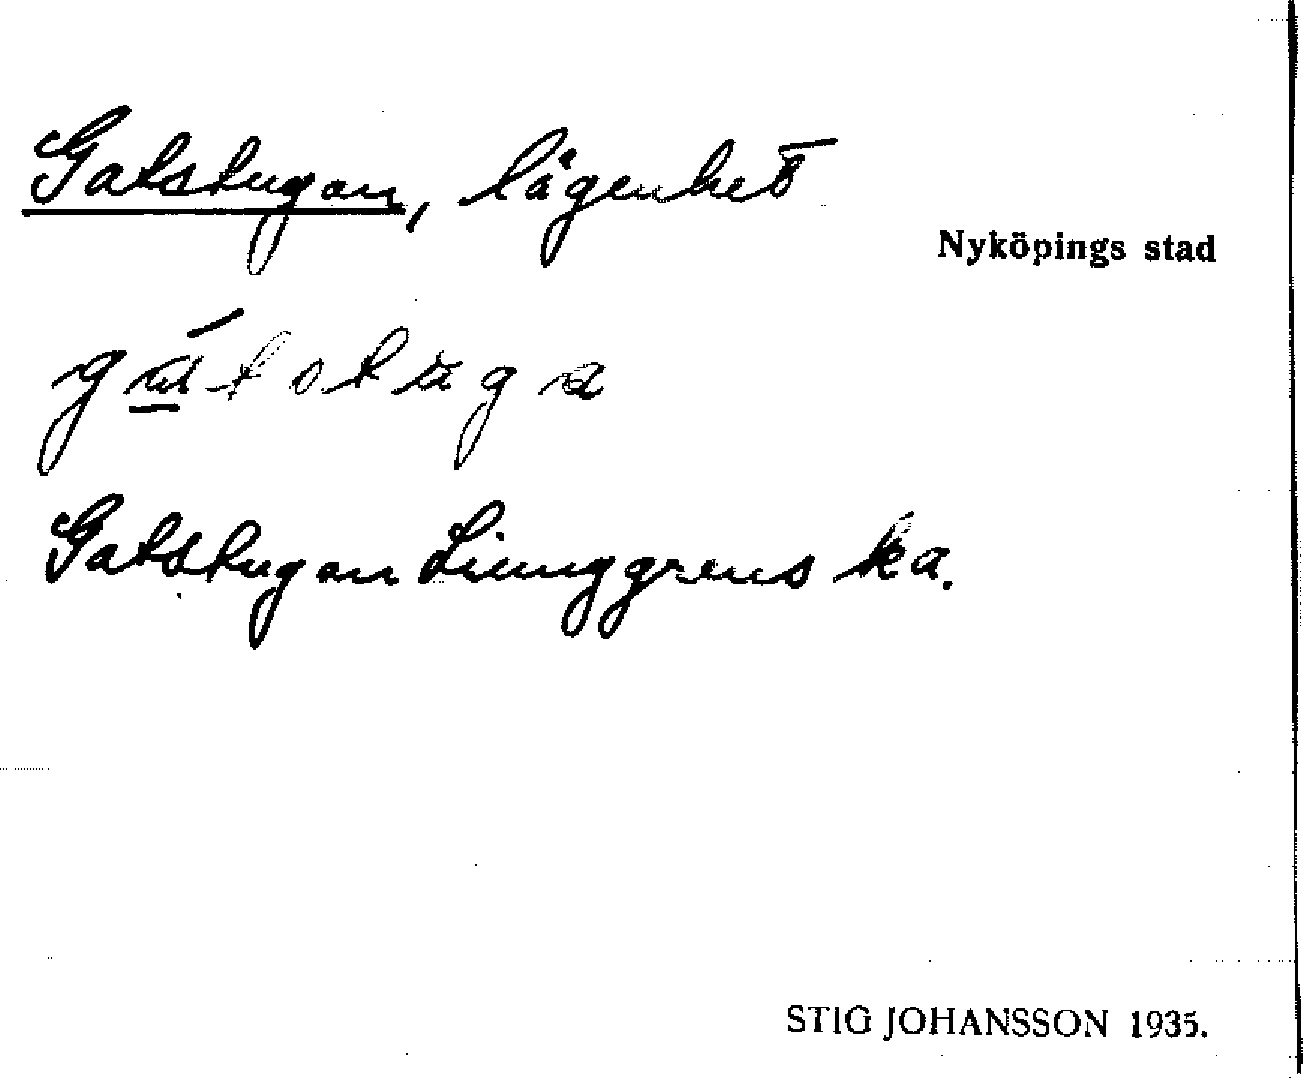 Gatstugan, lägenhet
Nyköpings stad
Gatstugan Liunggrens ka.
STIG JOHANSSON 1935.